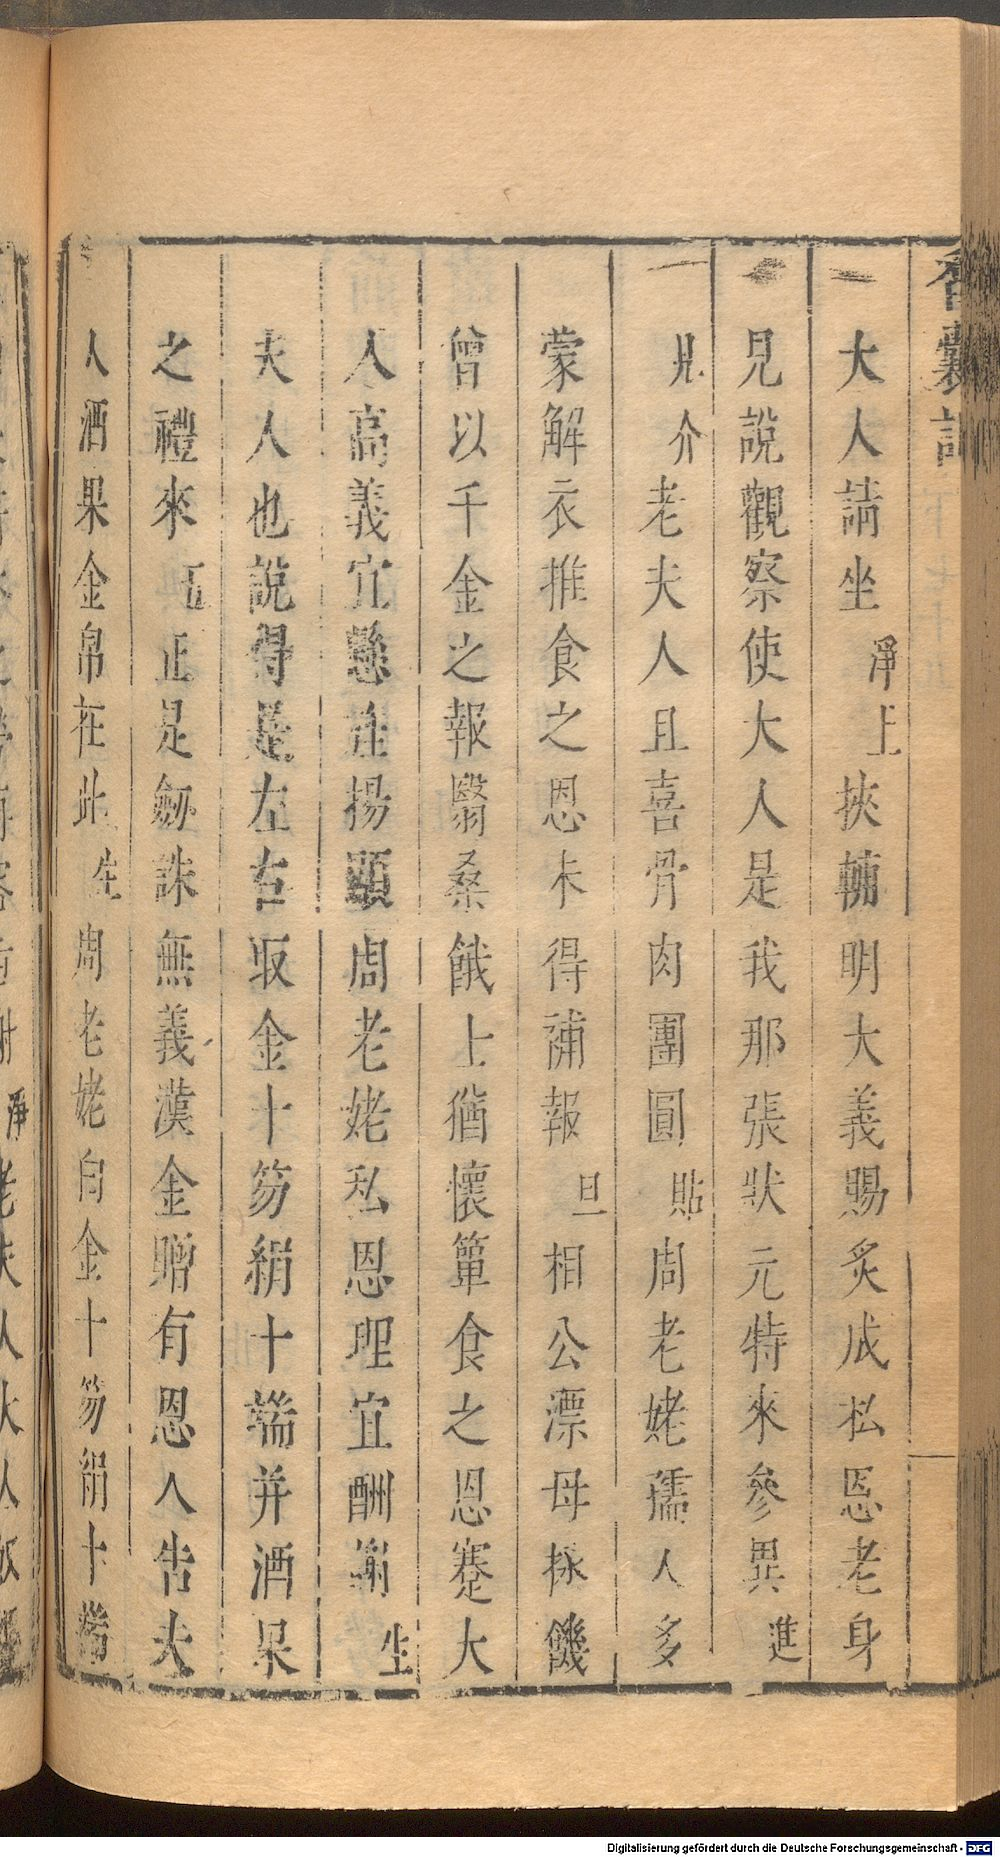 香囊記
大人請坐淨上挾輔明大義賜炙成私恩老身
見說觀察使大人是我那張狀元特來參異進
見介老夫人且喜骨肉團圓貼周老姥孺人多
蒙解衣推食之恩未得補報旦相公漂母採饑
曾以千金之報翳桑餓上猶懷簞食之恩蹇大
人高義宜懸注揚顯周老姥私恩理宜酬謝生
夫人也說得是左右取金十笏絹十端并酒果
之禮來丑正是劍誅無義漢金贈有恩人告夫
人酒果金帛在此生周老姥白金十笏絹十端
Digitalisierung gefördert durch die Deutsche Forschungsgemeinschaft - DFG